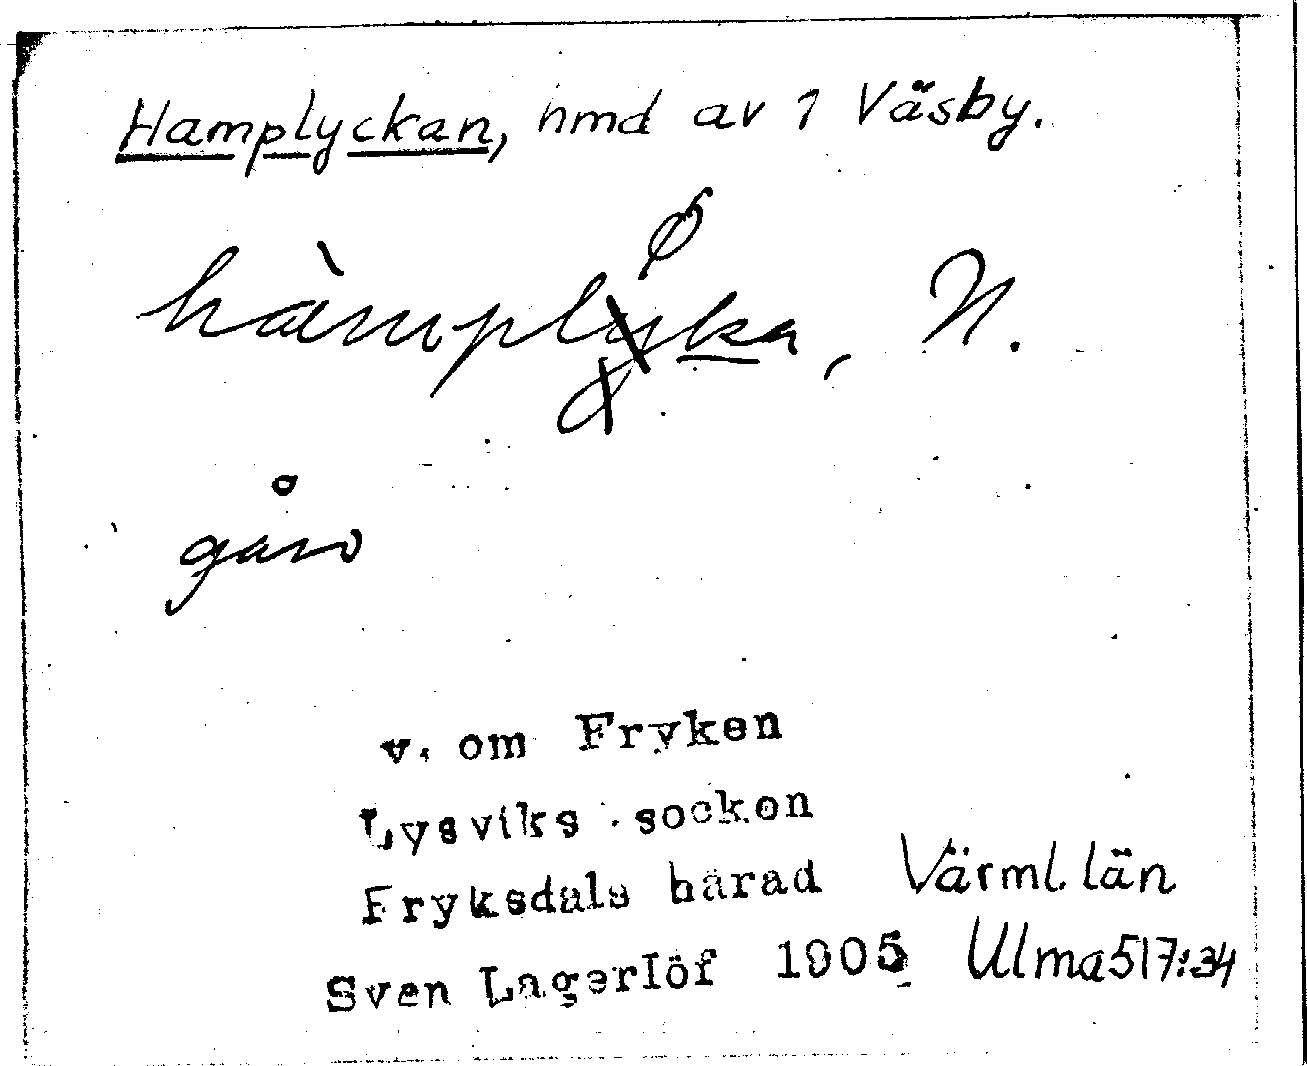 Hamplyckan, hmd av 1 Väsby.
hàmplyka, N.
gåro
v. om Fryken
Lysviks socken
Fryksdals härad Värml. län
Sven Lagerlöf 1905 Ulma 517:34